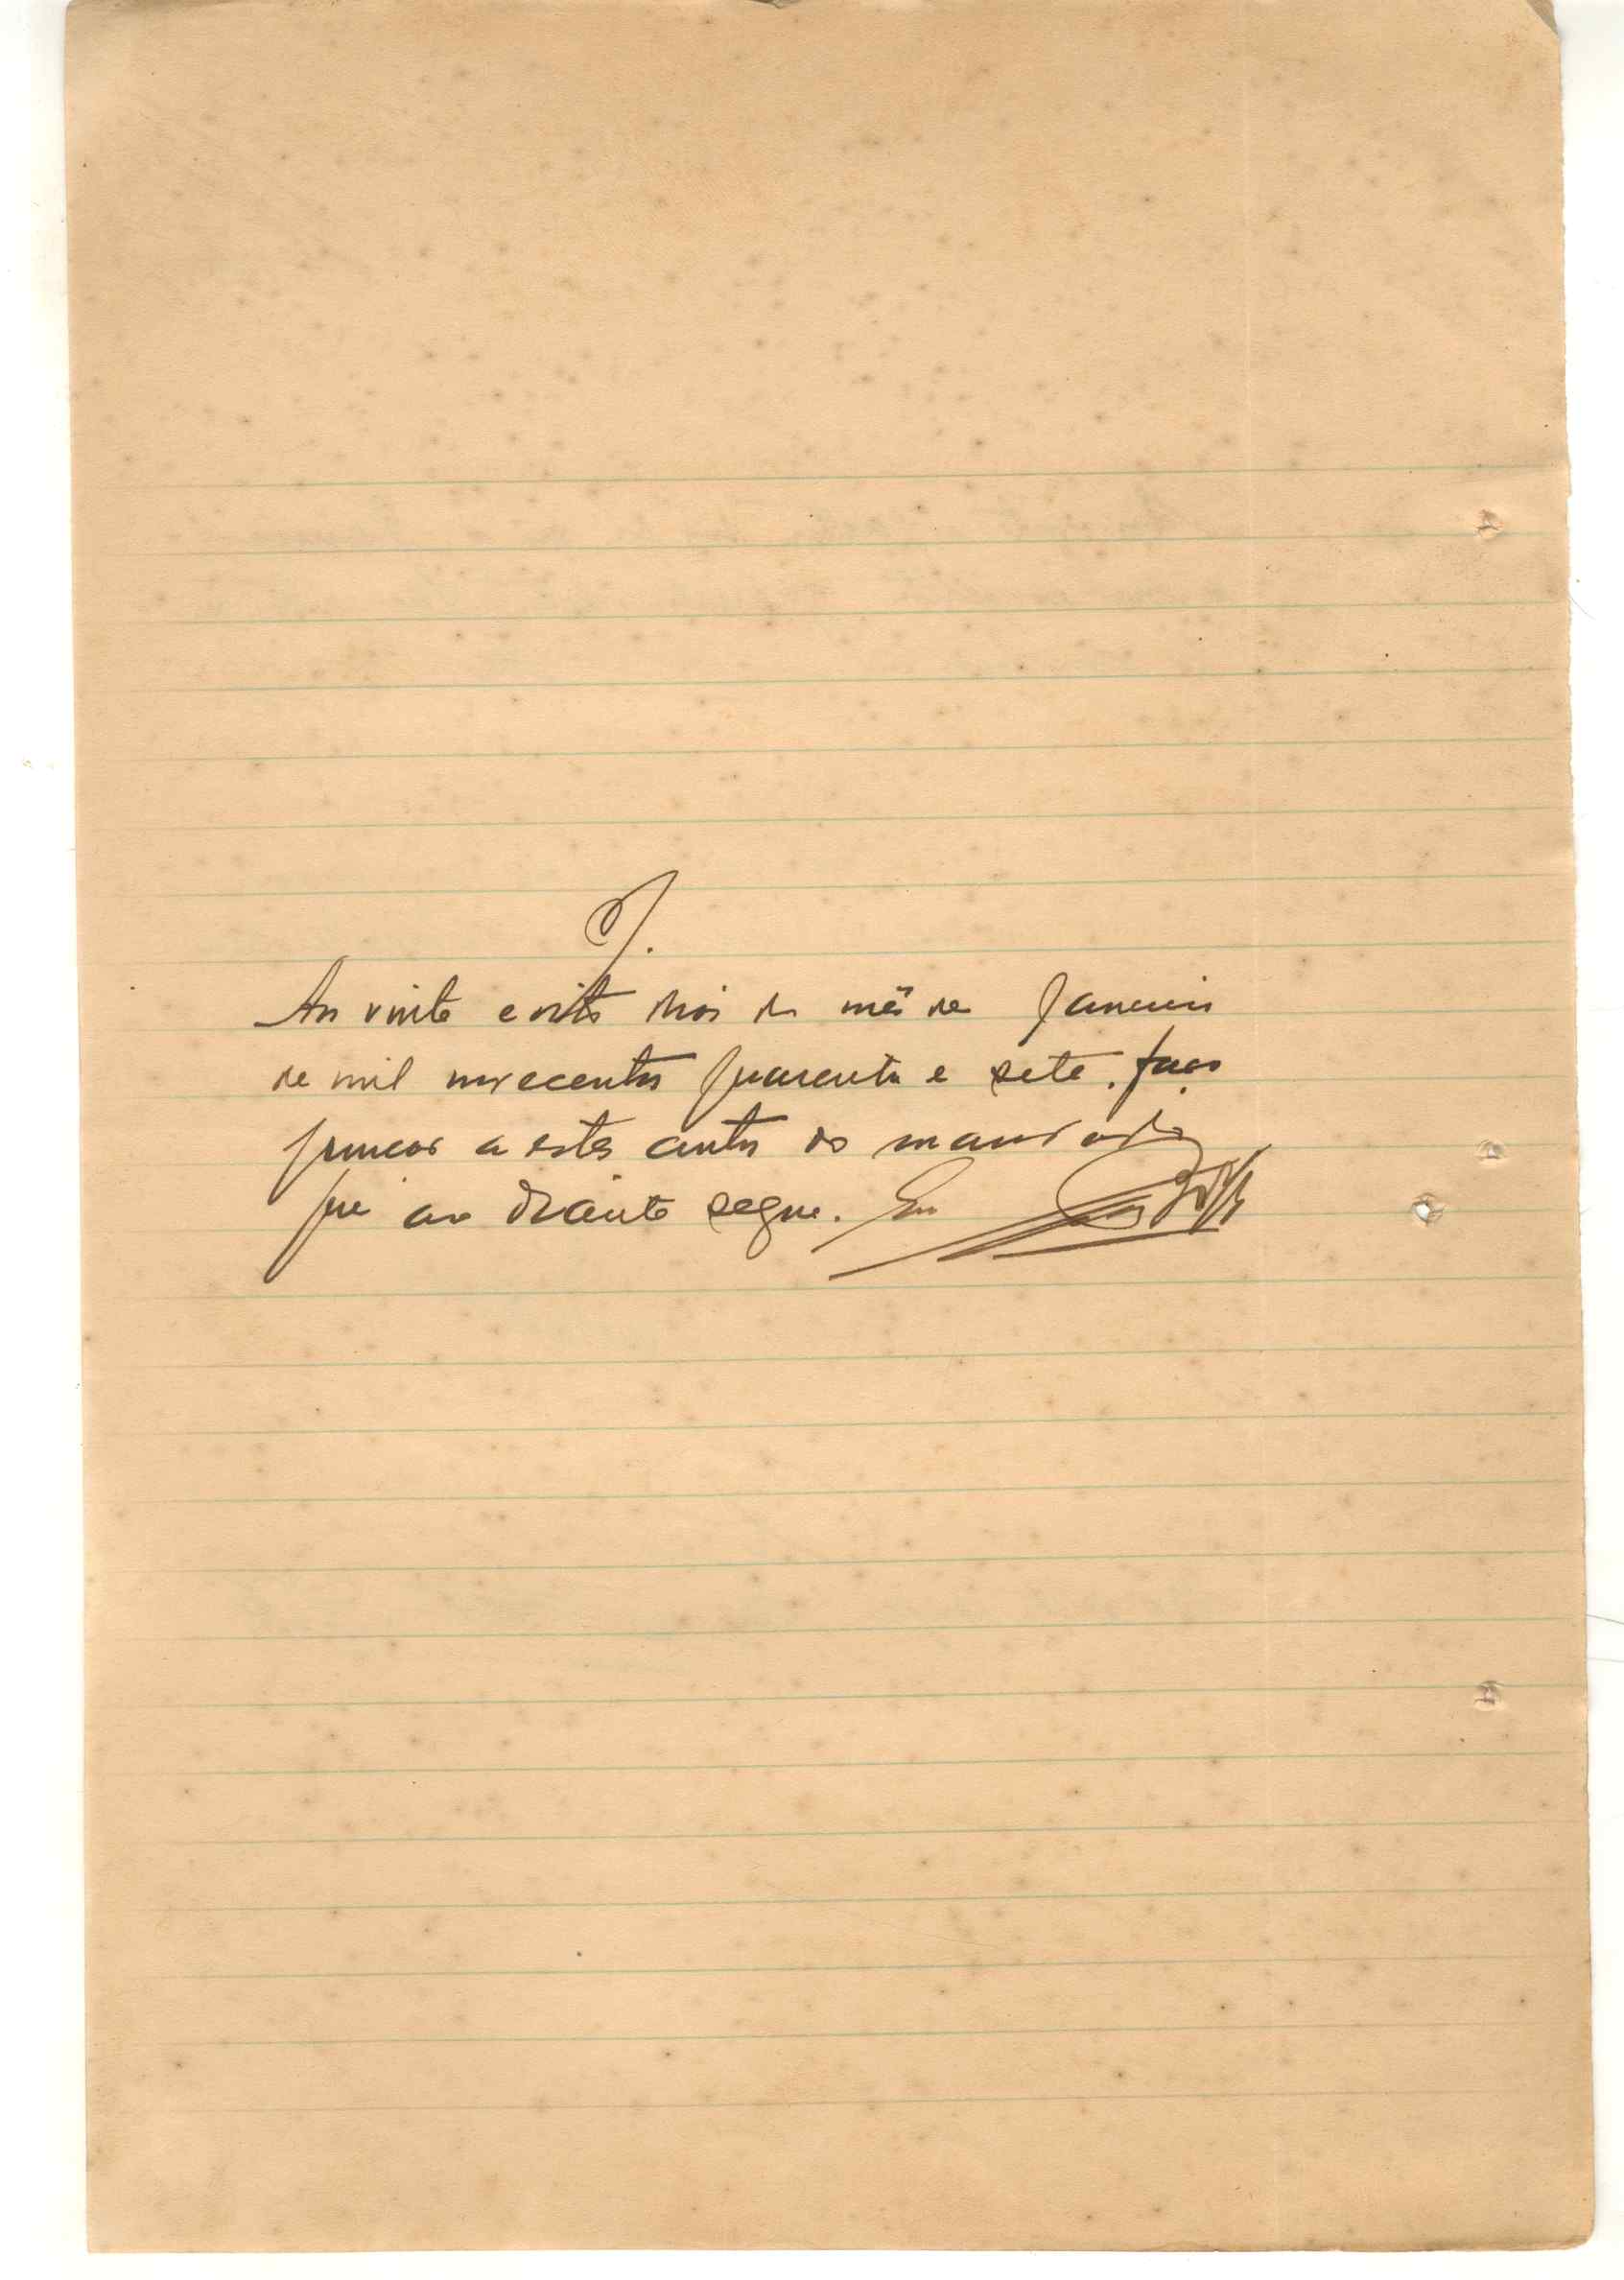 J.
Aos vinte e oito dias do mês de Janeiro
de mil novecentos quarenta e sete. faço
juncao a estes autos do mandado
que ao diante segue. Eu